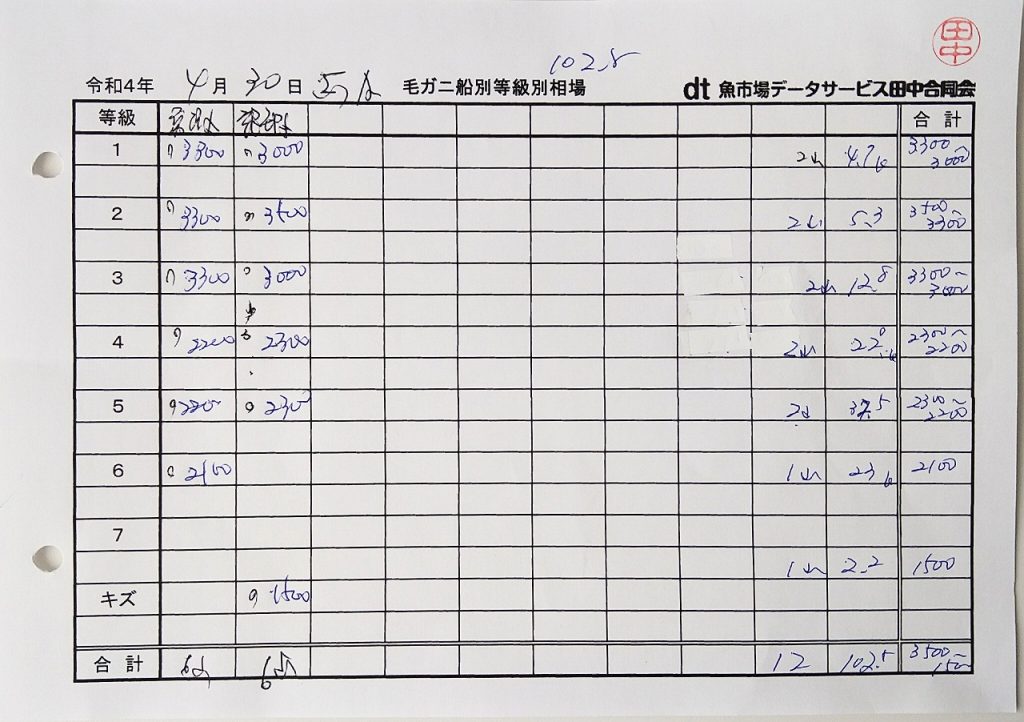 田中
102.8
令和4年 4月30日 毛ガニ船別等級別相場 dt 魚市場データサービス田中合同会
等級 合計
1 3300 3000 2山 4.7 3300 3000
2 3300 3500 2山 5.3 3500 3300
3 3300 3000 2山 12.8 3300~ 3000
4 2200 2300 2山 22.0 2300~ 2200
5 220 230 2山 5 2300~ 2200
6 2100 1山 23 2100
7
1山 2.2 1500
キズ 1500
合計 6山 6山 12 102.5 3500~ 1500